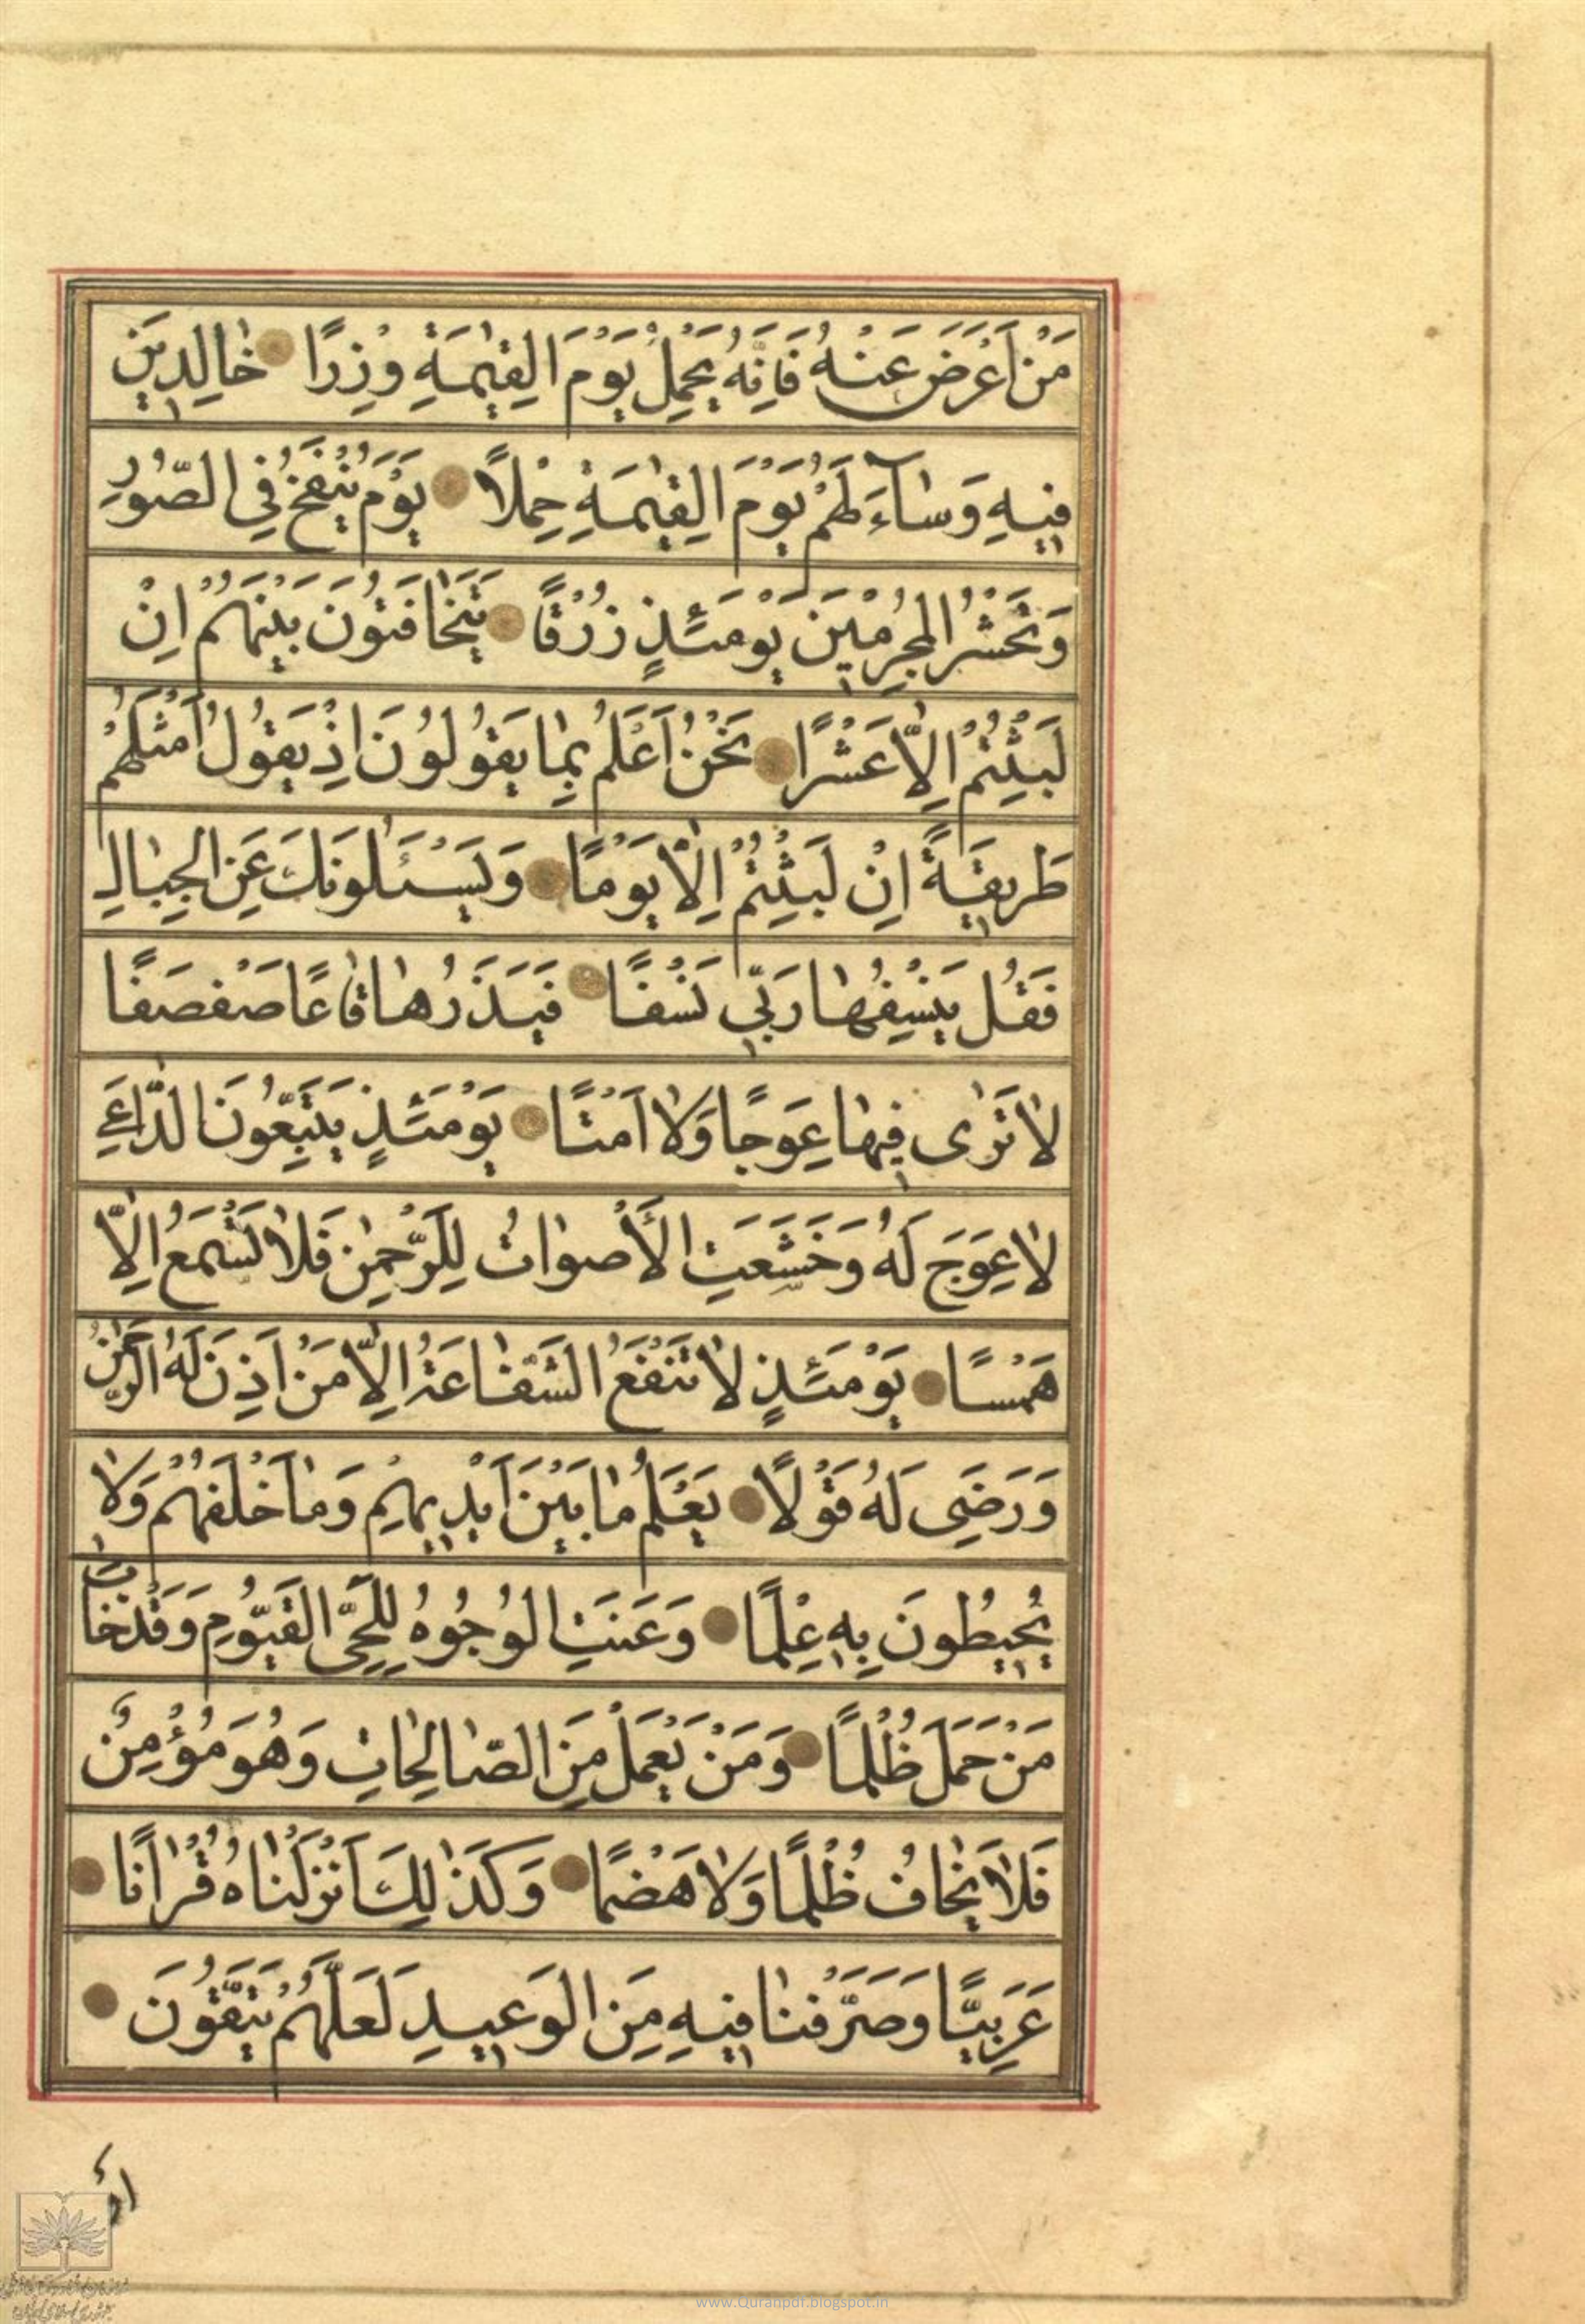 مَنْ اَعْرَضَ عَنْهُ فَاِنَّهُ يَحْمِلُ يَوْمَ الْقِيٰمَةِ وِزْرًا خٰالِدِينَ
فِيهِ وَسٰآءَ لَهُمْ يَوْمَ الْقِيٰمَةِ حِمْلاً يَوْمَ يُنْفَخُ فِي الصُّورِ
وَنَحْشُرُ الْمُجْرِمْينَ يَوْمَئِذٍ زُرْقًا يَتَخٰافَتُونَ بَيْنَهُمْ اِنْ
لَبِثْتُمْ اِلاّٰ عَشْرًا نَحْنُ اَعْلَمُ بِمٰا يَقُولُونَ اِذْ يَقُولُ اَمْثَلُهُمْ
طَرِيقَةً اِنْ لَبِثْتُمْ اِلاّٰ يَوْمًا وَيَسْئَلُونَكَ عَنِ الْجِبٰالِ
فَقُلْ يَنْسِفُهٰا رَبّي نَسْفًا فَيَذَرُهٰا قٰاعًا صَفْصَفًا
لاٰ تَرٰى فِيهٰا عِوَجًا وَلاٰ اَمْتًا يَوْمَئِذٍ يَتَّبِعُونَ الدّٰاعِيَ
لاٰ عِوَجَ لَهُ وَخَشَعَتِ الْأَصْوٰاتُ لِلرَّحْمٰنِ فَلاٰ تَسْمَعُ اِلاّٰ
هَمْسًا يَوْمَئِذٍ لاٰ تَنْفَعُ الشَّفٰاعَةُ اِلاّٰ مَنْ اَذِنَ لَهُ الرَّحْمٰنُ
وَرَضِىَ لَهُ قَوْلاً يَعْلَمُ مٰا بَيْنَ اَيْدِيهِمْ وَمٰا خَلْفَهُمْ وَلاٰ
يُحِيطُونَ بِهِ عِلْمًا وَعَنَتِ الْوُجُوهُ لِلْحَىِّ الْقَيُّومِ وَقَدْ خٰابَ
مَنْ حَمَلَ ظُلْمًا وَمَنْ يَعْمَلْ مِنَ الصّٰالِحٰاتِ وَهُوَ مُؤْمِنٌ
فَلاٰ يَخٰافُ ظُلْمًا وَلاٰ هَضْمًا وَكَذٰلِكَ اَنْزَلْنٰاهُ قُرْاٰنًا
عَرَبِيًّا وَصَرَّفْنٰا فِيهِ مِنَ الْوَعِيدِ لَعَلَّهُمْ يَتَّقُونَ
اَوْ
www.Quranpdf.blogspot.in